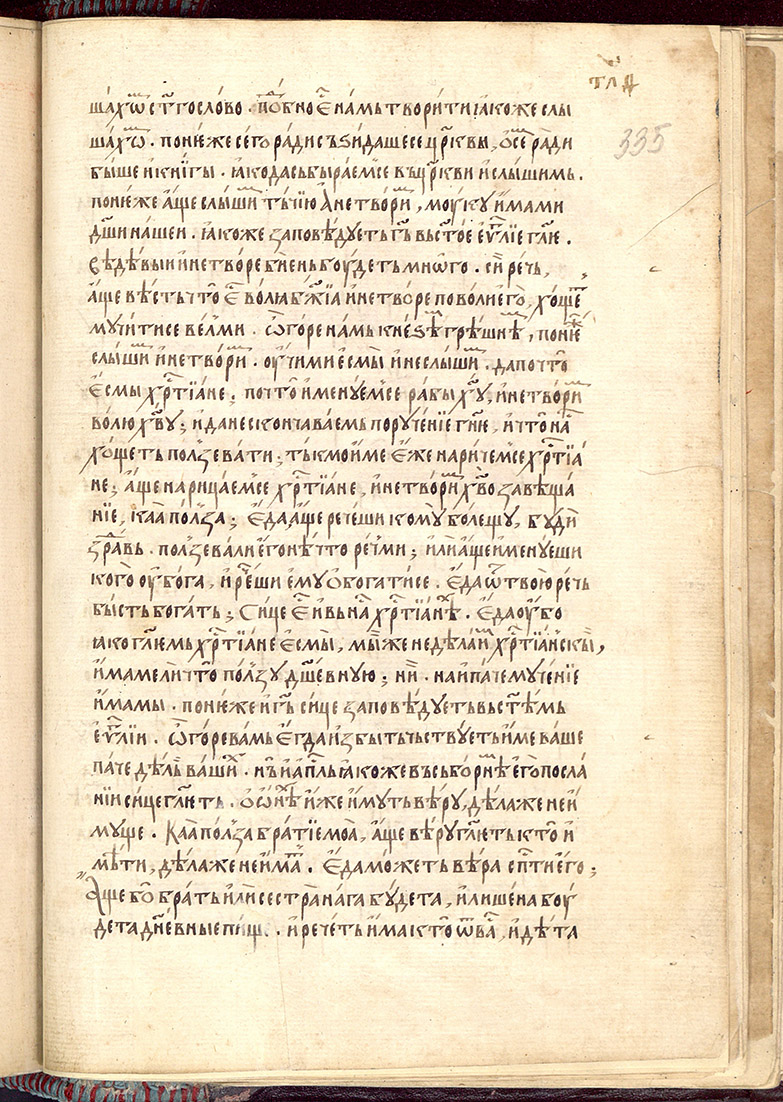 тл҃д
335
ша́хѡⷨ ст҃го сло́во · побⷣно є҆сⷭ҇ на́мь твори́ти ꙗ҆коже слы
ша́хѡⷨ · поне́же сего̀ ра́ди съꙁи́даше се цр҃квы, ѻ҆ се́м ра́ди
бы́ше и҆ кни́гы · ꙗ҆ко да съби́раемсе въ цр҃кви и҆ слы́шимь ·
поне́же а҆́ще слы́шиⷨ тъ́чїю а҆ не тво́риⷨ, моу́ку и҆́мами
дш҃и на́шеи · ꙗ҆́коже ꙁаповѣ́дуеть гь҃ вь ст҃ое еѵⷢ҇лїе гл҃ѥ ·
вѣ́девыи и҆ не тво́ре бїе́нь боу́деть мнѡ́го · си рѣчь,
а҆́ще вѣ́сть что̀ є҆сⷭ҇ во́лꙗ бж҃їа и҆ не тво́ре по во́ли є҆го̀, хо́щеⷮ
му́чити се ве́лми · ѽ го́ре на́мь кне́ꙁѣⷨ грѣ́шнїѣⷨ, поне́жеⷤ
слы́шиⷨ и҆ не тво́риⷨ · оу҆́чими є҆смы̀ и҆ не слы́шиⷨ · да почто̀
є҆смы̀ хрⷭ҇тїа́не ; почто̀ и҆мену́емсе рабы̀ хⷭ҇у, и҆ не тво́риⷨ
во́лю хⷭ҇ву ; и҆ да не сконча́ваемь поруче́нїе гн҃ѥ, и҆ что̀ наⷨ
хо́щеть по́лꙁевати ; тъ́кмо и҆́ме є҆́же нари́чемсе хрⷭ҇тїа́
не ; а҆́ще нарица́емсе хрⷭ҇тїа́не, и҆ не тво́риⷨ хв҃о ꙁавѣща́
нїе, ка́а по́лꙁа ; є҆да̀ а҆́ще рече́ши кому̀ бо́лещу, бу́ди
ꙁдра́вь · по́лꙁева ли є҆го̀ нѣ́что ре́чми ; и҆лѝ а҆́ще и҆мену́еши
кого̀ оу҆бо́га, и҆ рече́ши є҆му̀ ѻ҆богати́ се · є҆да̀ ѿ твою̀ рѣчь
бы́сть бога́ть ; Си́це є҆сⷭ҇ и҆ вь на́ хрⷭ҇тїа́нѣхⷯ · є҆да̀ оу҆́бо
ꙗ҆ко гл҃ѥмь хрⷭ҇тїа́не є҆смы̀, мы́ же не дѣ́лаиⷨ хрⷭ҇тїа́нскы,
и҆́мамели что̀ по́лꙁу дш҃е́вную ; нѝ · наи́паче муче́нїе
и҆́мамы · поне́же и҆ гь҃ си́це ꙁаповѣ́дуеть вь ст҃ѣмь
еѵⷢ҇лїи · ѽ го́ре ва́мь є҆гда̀ и҆ꙁбы́тьчьствуеть и҆́ме ва́ше
па́че дѣ́ль ва́шиⷯ · нъ̀ и҆ а҆пⷭ҇ль ꙗ҆́коже въ събо́рнѣⷨ є҆го̀ посла́
нїи си́це гл҃ѥть · ѻ҆ ѡ҆нѣⷯ и҆́же и҆́муть вѣ́ру, дѣ́ла же не и҆
му́ще · Ка́а по́лꙁа бра́тїе моа̀, а҆́ще вѣ́ру гл҃ѥть кто̀ и҆
мѣ́ти, дѣ́ла же не и҆́маⷮ · є҆да̀ мо́жеть вѣ́ра спⷭ҇ти є҆го̀ ;
А҆́ще бо̀ бра́ть и҆лѝ сестра̀ на́га бу́дета, и҆ лише́на боу́
дета дн҃е́вные пи́щ · и҆ рече́ть и҆́ма кто̀ ѿ ва́сⷭ҇, и҆дѣ́та